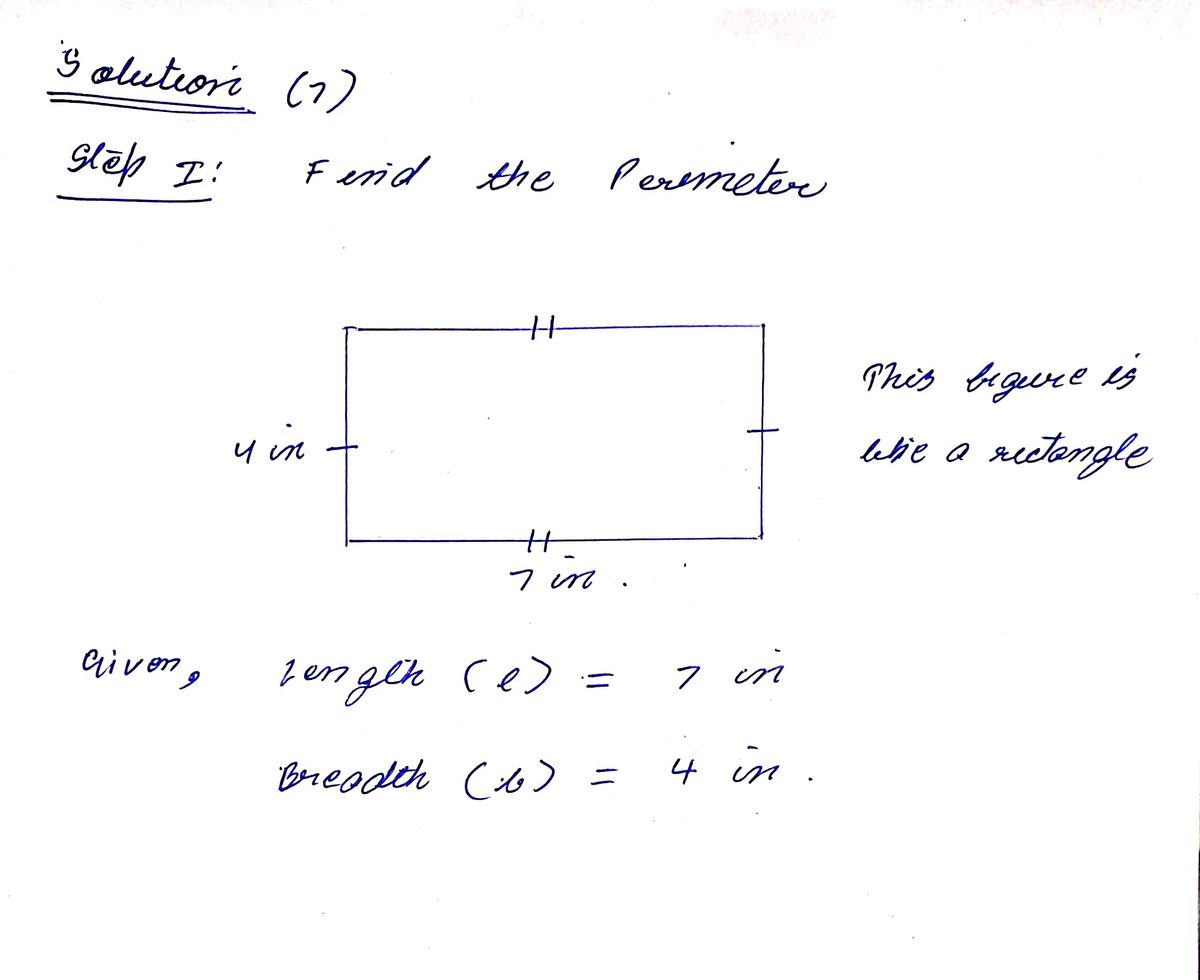 Solution (7)
Step I: Find the Perimeter
4 in
7 in .
This figure is
like a rectangle
Given, Length (l) = 7 in
Breadth (b) = 4 in .